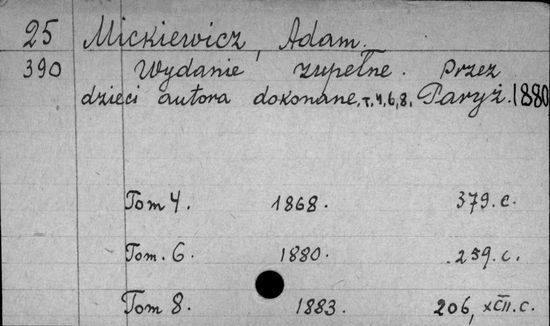 25 Mickiewicz, Adam.
390 Wydanie zupełne. Przez
dzieci autora dokonane, т.4,6,8, Paryż. 1880
Tom 4. 1868. 379. c.
Tom. 6. 1880. 259. c.
Tom 8. 1883. 206, XCII. c.